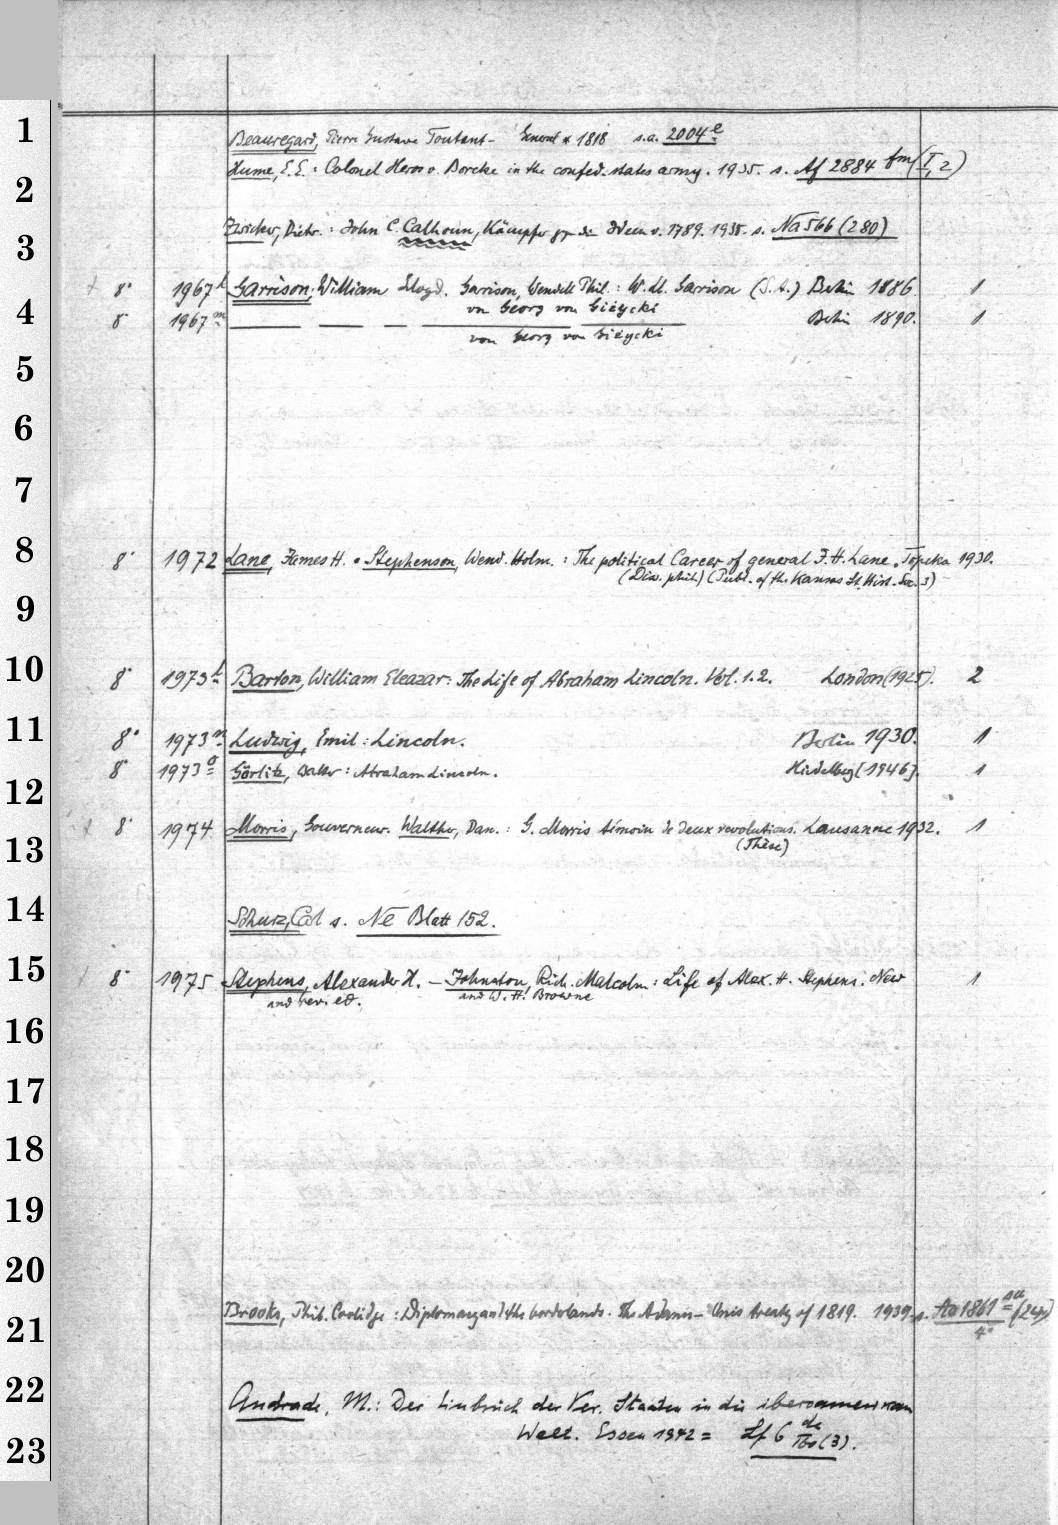 1
Beauregard, Pierre Gustave Toutant- General * 1818 s.a. 2004 e
Hume, E.E.: Colonel Heros v. Borcke in the confed. states army. 1935. s. Af 2884 fm (I, 2)
2
Zwicker, Dietr.: John C. Calhoun, Kämpfer gg. die Ideen v. 1789. 1935. s. Na 566 (280)
3
8° 1967 l Garrison, William Lloyd. Garrison, Wendell Phil.: W. Ll. Garrison (D.A.) Berlin 1886. 1
von Georg von Giżycki
4
8° 1967 m Berlin 1890. 1
von Georg von Giżycki
5
6
7
8
8° 1972 Lane, James H. • Stephenson, Wend. Holm.: The political Career of general J. H. Lane. Topeka 1930.
(Diss. phil.) (Publ. of the Kansas St. Hist. Soc. 3)
9
10
8° 1973 l Barton, William Eleazar: The Life of Abraham Lincoln. Vol. 1.2. London (1925). 2
11
8° 1973 n Ludwig, Emil: Lincoln. Berlin 1930. 1
8° 1973 o Görlitz, Walter: Abraham Lincoln. Heidelberg [1946]. 1
12
8° 1974 Morris, Gouverneur. Walther, Dan.: G. Morris témoin de deux revolutions. Lausanne 1932. 1
13
(Thèse)
14
Schurz, Carl s. Ne Blatt 152.
15
8° 1975 Stephens, Alexander H. — Johnston, Rich. Malcolm: Life of Alex. H. Stephens. New 1
and revi ed. and W. H. Browne
16
17
18
19
20
Brooks, Phil. Coolidge: Diplomacy and the borderlands. The Adams-Onis treaty of 1819. 1939. s. Aa 1861 (24)
4°
21
22
Andrade, M.: Der Einbruch der Ver. Staaten in die iberoamerikan
Welt. Essen 1942 = Lf 6 de (3).
23